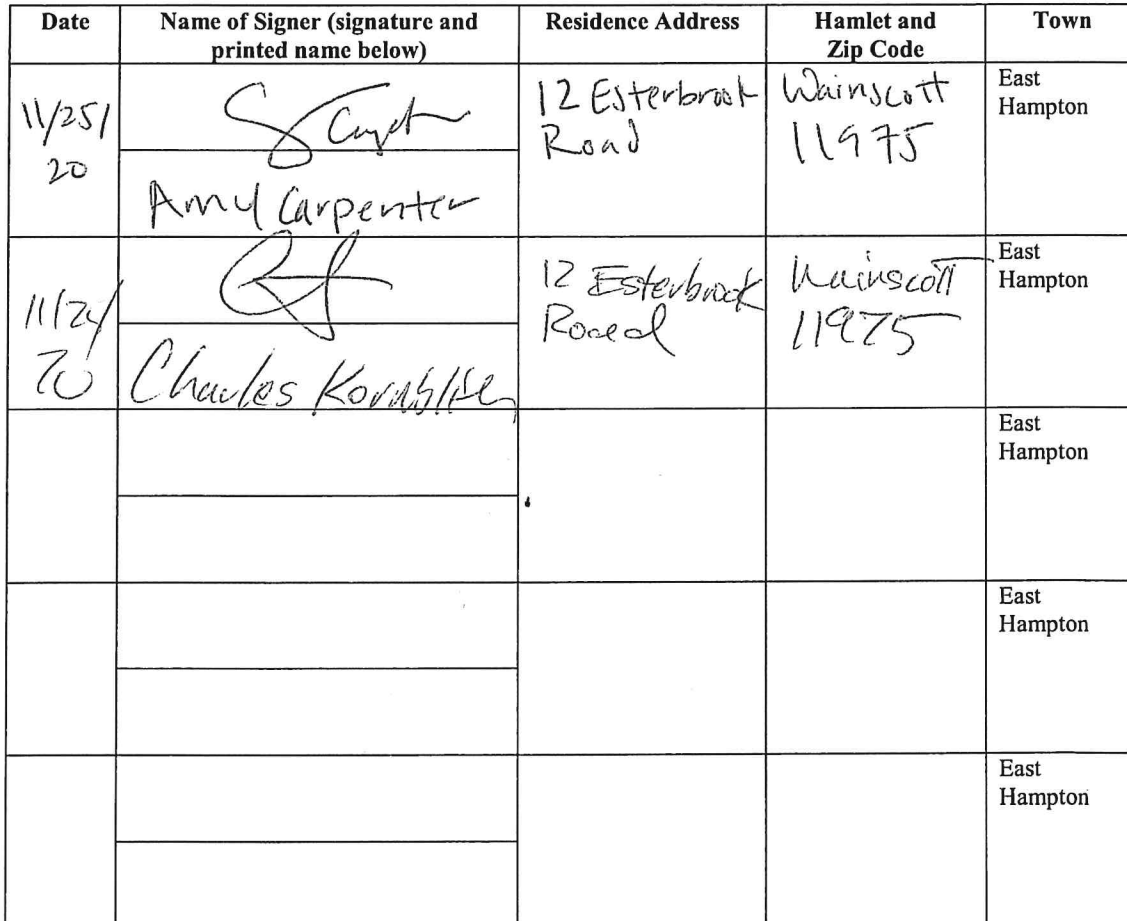 Date Name of Signer (signature and printed name below) Residence Address Hamlet and Zip Code Town
11/25/
20
12 Esterbrook
Road
Wainscott
11975
East
Hampton
Amy Carpenter
20
Charles
12 Esterbrook
Road
Wainscott
11975
East
Hampton
East
Hampton
East
Hampton
East
Hampton